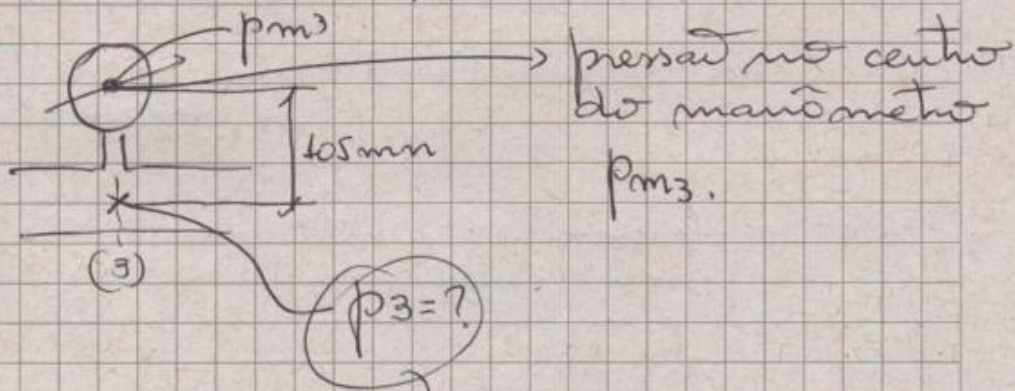 pm3
pressão no centro
do manômetro
pm3.
105mm
(3)
p3=?